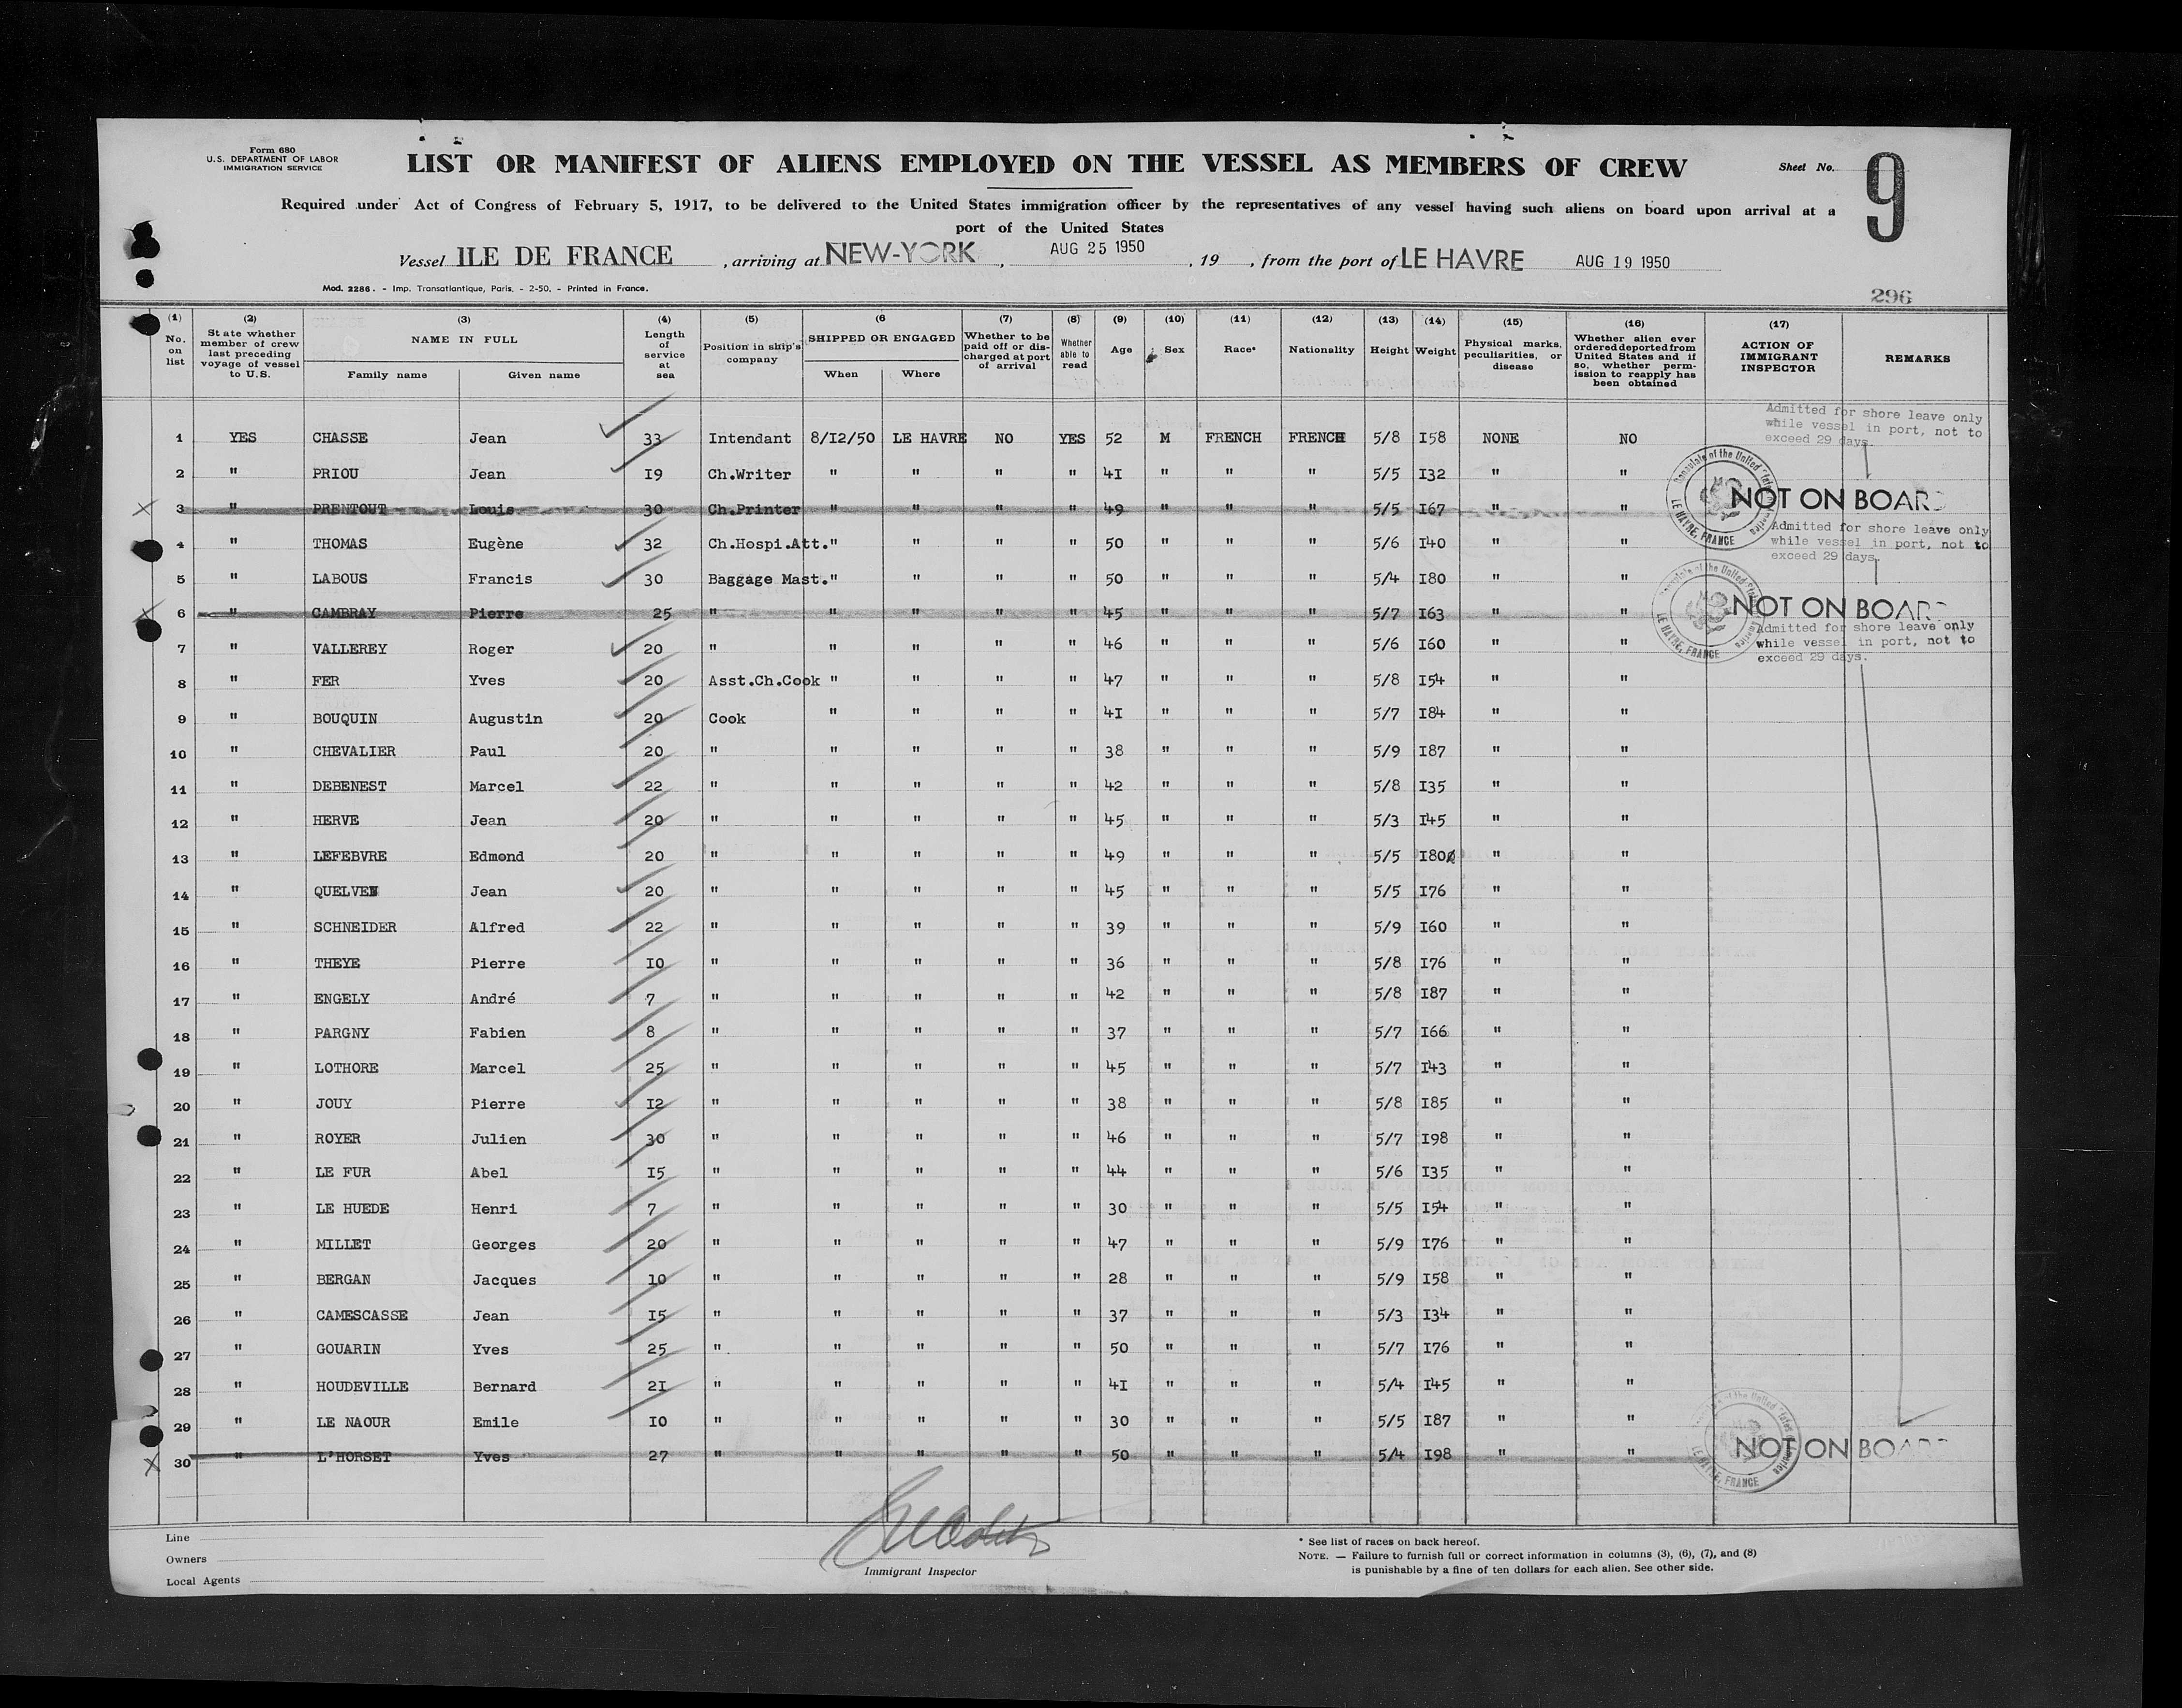 Form 680
U.S. DEPARTMENT OF LABOR
IMMIGRATION SERVICE
LIST OR MANIFEST OF ALIENS EMPLOYED ON THE VESSEL AS MEMBERS OF CREW
Sheet No. 9
Required under Act of Congress of February 5, 1917, to be delivered to the United States immigration officer by the representatives of any vessel having such aliens on board upon arrival at a
port of the United States
Vessel ILE DE FRANCE , arriving at NEW-YORK , AUG 25 1950 , 19 , from the port of LE HAVRE AUG 19 1950
Mod. 2286. - Imp. Transatlantique, Paris. - 2-50. - Printed in France.
296
(1) No. on list
(2) State whether member of crew last preceding voyage of vessel to U.S.
(3) NAME IN FULL Family name Given name
(4) Length of service at sea
(5) Position in ship's company
(6 SHIPPED OR ENGAGED When Where
(7) Whether to be paid off or dis-charged at port of arrival
(8) Whether able to read
(9) Age
(10) Sex
(11) Race*
(12) Nationality
(13) Height
(14) Weight
(15) Physical marks, peculiarities, or disease
(16) Whether alien ever ordered deported from United States and if so, whether perm-ission to reapply has been obtained
(17) ACTION OF IMMIGRANT INSPECTOR
REMARKS
Admitted for shore leave only
while vessel in port, not to
exceed 29 days.
1 YES CHASSE Jean 33 Intendant 8/I2/50 LE HAVRE NO YES 52 M FRENCH FRENCH 5/8 I58 NONE NO
2 " PRIOU Jean I9 Ch.Writer " " " " 4I " " " 5/5 I32 " "
3 " PRENTOUT Louis 30 Ch.Printer " " " " 49 " " " 5/5 I67 " " NOT ON BOARD
Consulate of the United States of America
LE HAVRE, FRANCE
Admitted for shore leave only
while vessel in port, not to
exceed 29 days.
4 " THOMAS Eugène 32 Ch.Hospi.Att. " " " " 50 " " " 5/6 I40 " "
5 " LABOUS Francis 30 Baggage Mast. " " " " 50 " " " 5/4 I80 " "
6 " CAMBRAY Pierre 25 " " " " " 45 " " " 5/7 I63 " " NOT ON BOARD
Consulate of the United States of America
LE HAVRE, FRANCE
Admitted for shore leave only
while vessel in port, not to
exceed 29 days.
7 " VALLEREY Roger 20 " " " " " 46 " " " 5/6 I60 " "
8 " FER Yves 20 Asst.Ch.Cook " " " " 47 " " " 5/8 I54 " "
9 " BOUQUIN Augustin 20 Cook " " " " 4I " " " 5/7 I84 " "
10 " CHEVALIER Paul 20 " " " " " 38 " " " 5/9 I87 " "
11 " DEBENEST Marcel 22 " " " " " 42 " " " 5/8 I35 " "
12 " HERVE Jean 20 " " " " " 45 " " " 5/3 I45 " "
13 " LEFEBVRE Edmond 20 " " " " " 49 " " " 5/5 I80 " "
14 " QUELVEN Jean 20 " " " " " 45 " " " 5/5 I76 " "
15 " SCHNEIDER Alfred 22 " " " " " 39 " " " 5/9 I60 " "
16 " THEYE Pierre IO " " " " " 36 " " " 5/8 I76 " "
17 " ENGELY André 7 " " " " " 42 " " " 5/8 I87 " "
18 " PARGNY Fabien 8 " " " " " 37 " " " 5/7 I66 " "
19 " LOTHORE Marcel 25 " " " " " 45 " " " 5/7 I43 " "
20 " JOUY Pierre I2 " " " " " 38 " " " 5/8 I85 " "
21 " ROYER Julien 30 " " " " " 46 " " " 5/7 I98 " "
22 " LE FUR Abel I5 " " " " " 44 " " " 5/6 I35 " "
23 " LE HUEDE Henri 7 " " " " " 30 " " " 5/5 I54 " "
24 " MILLET Georges 20 " " " " " 47 " " " 5/9 I76 " "
25 " BERGAN Jacques 10 " " " " " 28 " " " 5/9 I58 " "
26 " CAMESCASSE Jean I5 " " " " " 37 " " " 5/3 I34 " "
27 " GOUARIN Yves 25 " " " " " 50 " " " 5/7 I76 " "
28 " HOUDEVILLE Bernard 2I " " " " " 4I " " " 5/4 I45 " "
29 " LE NAOUR Emile IO " " " " " 30 " " " 5/5 I87 " "
30 " L'HORSET Yves 27 " " " " " 50 " " " 5/4 I98 " " NOT ON BOARD
of the United States of America
LE HAVRE, FRANCE
Line
Owners
Local Agents
Immigrant Inspector
* See list of races on back hereof.
NOTE. — Failure to furnish full or correct information in columns (3), (6), (7), and (8)
is punishable by a fine of ten dollars for each alien. See other side.